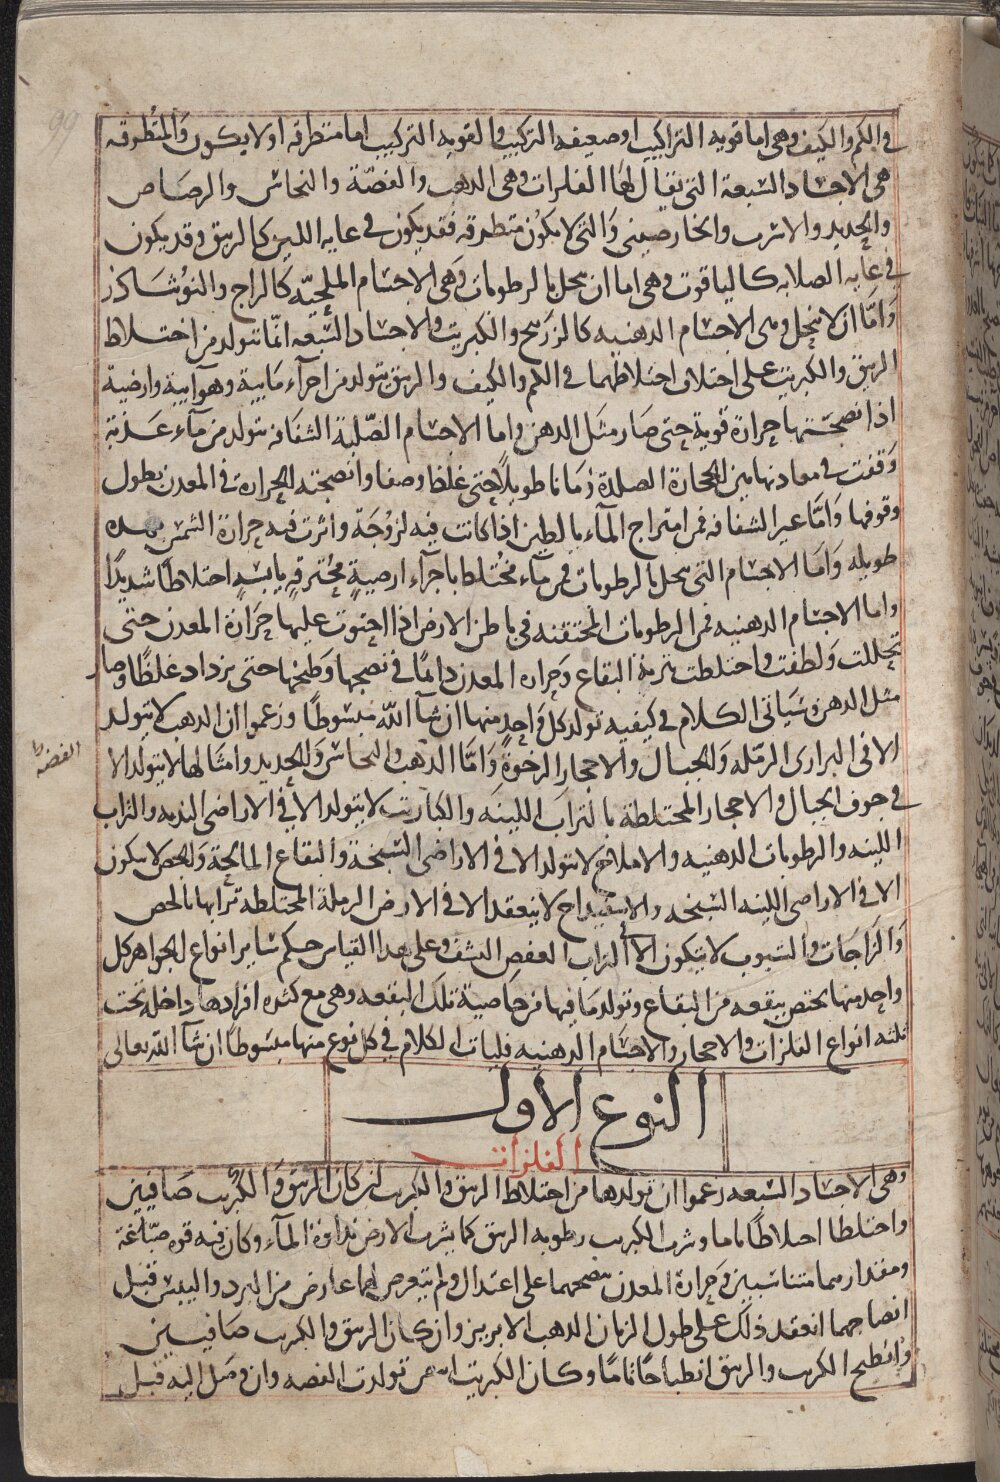 99
في الكم والكيف وهي اما قوية التراكيب او ضعيفه التركيب والقويه التركيب اما متطرقه او لا يكون والمتطرقه
هي الاجساد السبعة التي يقال لها الفلزات وهي الذهب والفضّة والنحاس والرصاص
والحديد والاسرب والخارصيني وَالتي لا يكون متطرقه فقد يكون في غايه اللين كالزيبق وقد يكون
في غايه الصلابه كالياقوت وهي اما ان ينحل بالرطوبات وَهي الاجسام الملحيّه كالزاج والنوشاذر
وَامّا ان لا ينحل وهي الاجسام الدهنيه كالزرنيخ والكبريت والاجساد السّبعه انما تتولد من اختلاط
الزيبق والكبريت على اختلاف اختلاطهما في الكم والكيف والزيبق يتولد من اجزآء مايية وهوآيية وارضية
اذا نضجتها حرارة قوية حتى صار مثل الدهن واما الاجسام الصّلبة الشفافه تتولد من مآء عذبة
وَقفت في معادنها بين الحجارة الصلدة زمانا طويلاً حتى غلظا وصفا وانضجته الحرارة في المعدن بطول
وقوفها وَامّا غير الشفافه فمن امتزاج المآء بالطين اذا كانت فيه لزوجَة وأثرت فيه حرارة الشمس بمده
طويله وَامّا الاجسام التي ينحل بالرطوبات فمن مآء مختلط باجزآء ارضيةٍ محترقهٍ يابسةٍ اختلاطًا شديدًا
واما الاجسام الدهنيه فمن الرطوبات المحتقنه في باطن الارض اذا احتوت عليها حرَارة المعدن حتى
تحللت وَلطفت واختلطت بتربة البقاع وَحراره المعدن دائمًا في نضجها وَطبخها حتى يزداد غلظًا وصار
مثل الدهن وسَياتي الكلام في كيفيه تولد كل وَاحدٍ منها ان شآ اللّه مبسوطًا وزعموا ان الذهب لا يتولد
الا في البراري الرّمله وَالجبال والاحجار الرخوة وَامّا الذهب والنحاس وَالحديد وامثالها لا يتولد الا
الفضه
في جوف الجبال والاحجار المختلطة بالتراب اللينه والكباريت لا يتولد الا في الاراضي النديه والتراب
اللينه والرطوبات الدهنيه والاملاح لا تتولد الا في الاراضى السّبخة والبقاع المالحة وَالجص لا يكون
الا في الاراضي اللينه السّبخه والاسفيداج لا ينعقد الا في الارض الرملة المختلطه ترابها بالجص
وَالزاجات والشبوب لا يتكون الا في التراب العفص النشف وعلى هذا القياس حكم ساير انواع الجواهر كل
واحد منها يختص ببقعه من البقاع وتولد مَا فيها من خاصية تلك البقعه وهي مع كثره افرادها داخله تحت
ثلثه انواع الفلزات والاحجار والاجسَام الدهنيه فليات الكلام في كل نوع منها مبسوطًا ان شآ اللّه تعالى
النوع الاول
الفلزات
وَهي الاجساد السّبعه زعموا ان تولدها من اختلاط الزيبق والكبريت ان كان الزيبق وَالكبريت صَافيين
واختلطا اختلاطًا تاما وشرب الكبريت رطوبه الزيبق كما يشرب الارض نداوة المآء وكان فيه قوه صبّاغة
ومقدارهما متناسبين وحَرارة المعدن تنضجهما على اعتدال ولم يتعرض لهما عارض من البرد واليبس قبل
انضاجهما انعقد ذلك على طول الزمان الذهب الابريز وان كان الزيبق والكبريت صافيين
وانطبخ الكبريت والزيبق انطباخًا تامًا وكان الكبريت ابيض تولدت الفضه وان وصل اليه قبل